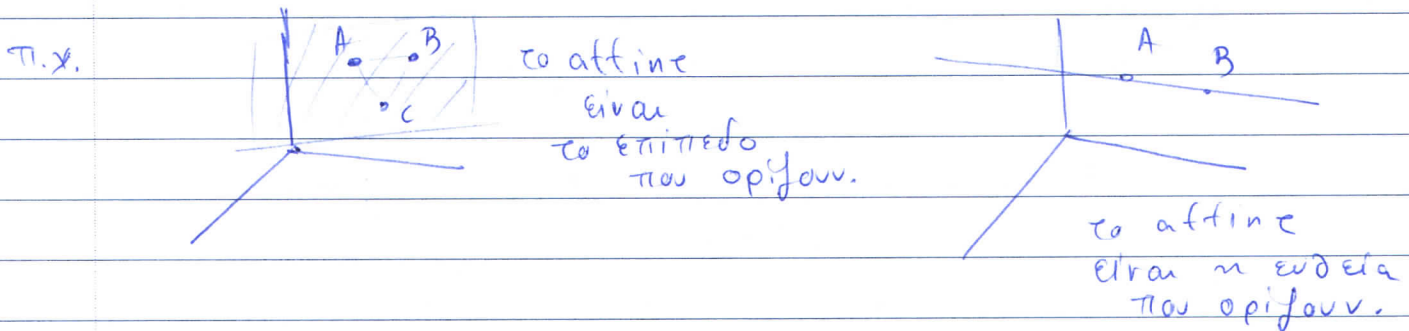 π.χ.
A B
C
το affine
είναι
το επίπεδο
που ορίζουν.
A
B
το affine
είναι η ευθεία
που ορίζουν.